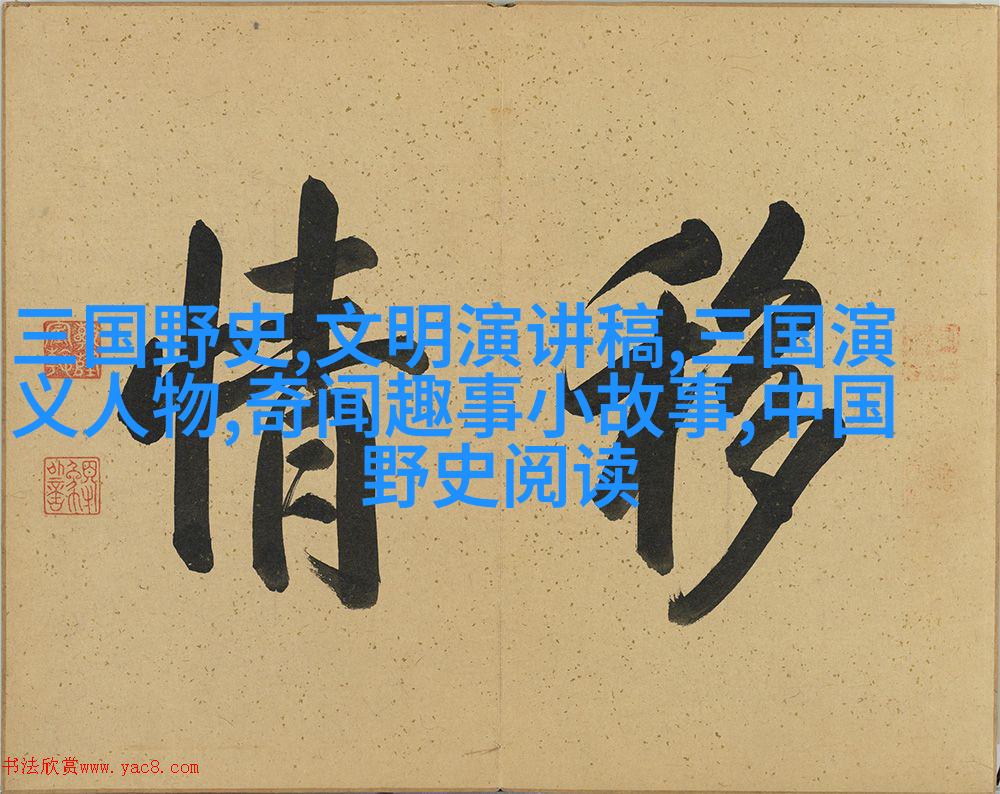 移情
三国野史,文明演讲稿,三国演
义人物,奇闻趣事小故事,中国
野史阅读
书法欣赏www.yac8.com